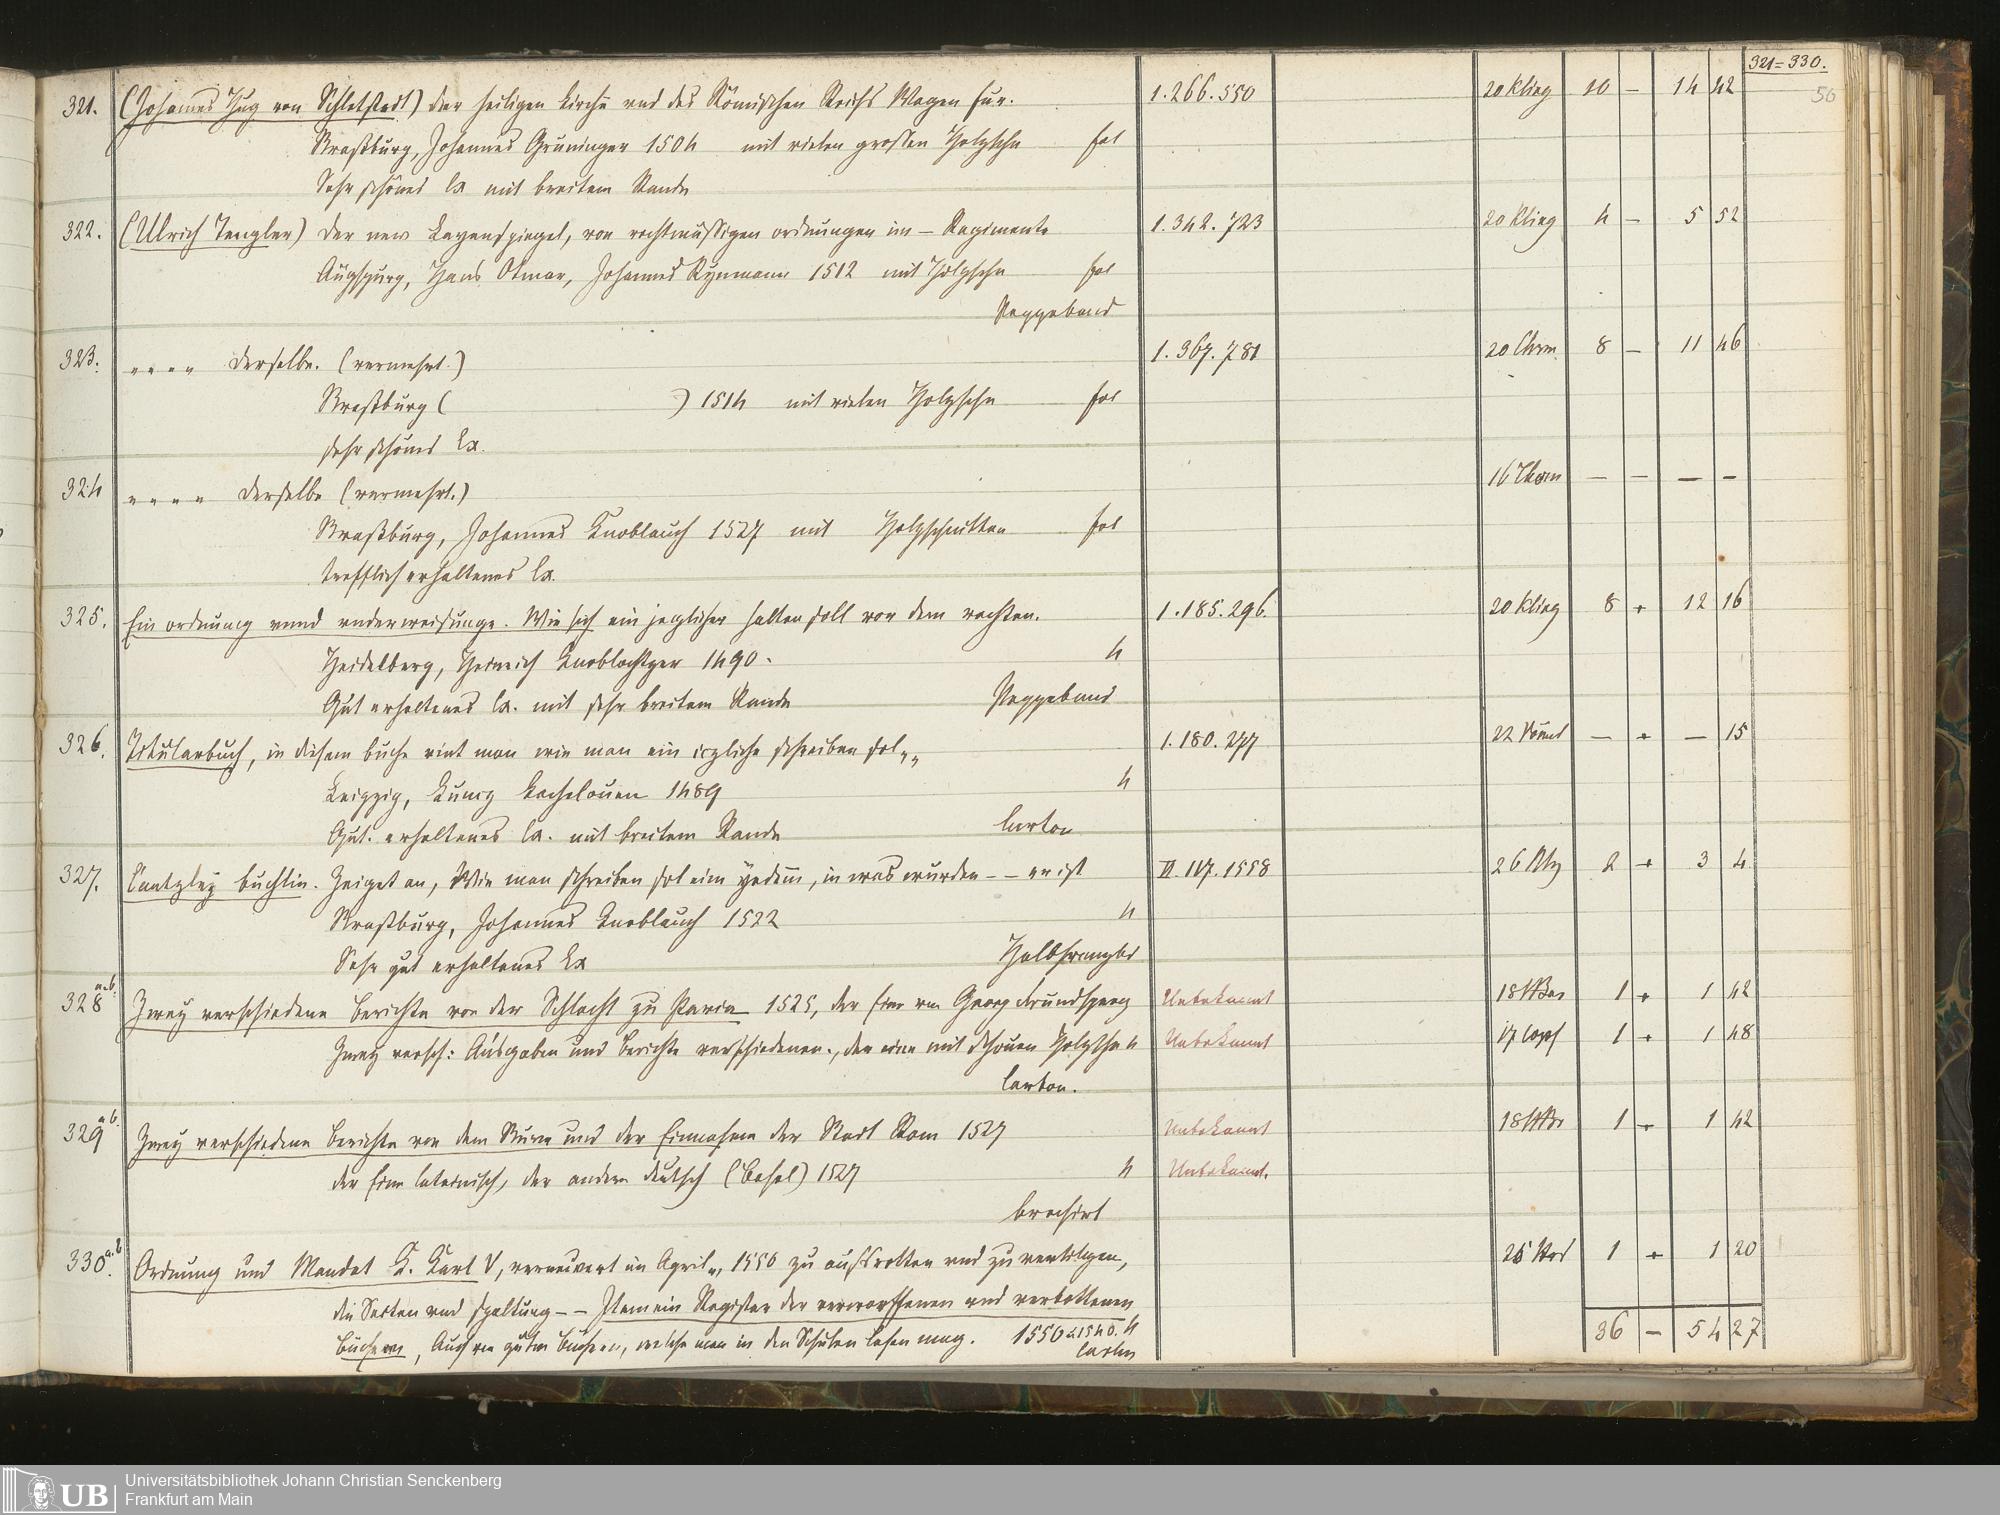 321=330.
50
321. (Johannes Hug von Schletstadt) der heiligen kirche vnd des Römischen Reichs Wagen fur. 1.266.550 20 Kling 10 – 14 42
Straßburg, Johannes Grüninger 1504 mit vielen grossen Holzschn fol
Sehr schönes Ex mit breitem Rande
322. (Ulrich Tengler) der new Layenspiegel, von rechtmässigen ordnungen im – Regimente 1.342.723 20 Kling 4 – 5 52
Augspurg, Hans Otmar, Johannes Rynmann 1512 mit Holzschn fol
Pappeband
323. „ „ „ „ derselbe. (vermehrt.) 1.367.781 20 Chrm. 8 – 11 46
Straßburg ( ) 1514 mit vielen Holzschn fol
sehr schönes Ex.
324 „ „ „ „ derselbe (vermehrt.) 16 – – – –
Straßburg, Johannes Knoblauch 1527 mit Holzschnitten fol
trefflich erhaltenes Ex.
325. Ein ordnung vnnd vnderweisunge. Wie sich ein jeglicher halten soll vor dem rechten. 1.185.296. 20 Kling 8 + 12 16
Heidelberg, Heinrich Knoblochtzer 1490. 4
Gut erhaltenes Ex. mit sehr breitem Rande Pappeband
326. Titularbuch, in diesem buche vint man wie man ein iczliche schreiben sol „ „ 1.180.277 22 – + – 15
Leipzig, Kunig Kachelouen 1489 4
Gut. erhaltenes Ex. mit breitem Rande Carton
327. Cantzley buchlin. Zeiget an, Wie man schreiben sol eim yedem, in was wurden – – er ist VI. IV. 1558 26 2 + 3 4
Straßburg, Johannes Knoblauch 1522 4
Sehr gut erhaltenes Ex Halbfranzbd
328 a.b. Zwey verschiedene Berichte von der Schlacht zu Pavia 1525, der Eine von Georg Frundsperg Unbekannt 18 1 + 1 42
Zwey versch: Ausgaben und Berichte verschiedenen., der eine mit schönen Holzschn 4 Unbekannt 17 1 + 1 48
Carton.
329 a.b. Zwey verschiedene Berichte von dem Sturm und der Einnahme der Stadt Rom 1527 Unbekannt 18 1 + 1 42
der Eine lateinisch, der andere deutsch (Basel) 1527 4 Unbekannt.
brochirt
330 a.b. Ordnung und Mandat K. Karl V, vernewert im April „ 1550 zu aussrotten vnd zu vertilgen, 25 1 + 1 20
die Secten vnd spaltung – – Item ein Register der verworffenen vnd verbottenen
Büchern, Auch von guten Büchern, welche man in den Schulen lesen mag. 1550 4
Carton
36 – 54 27
UB
Universitätsbibliothek Johann Christian Senckenberg
Frankfurt am Main